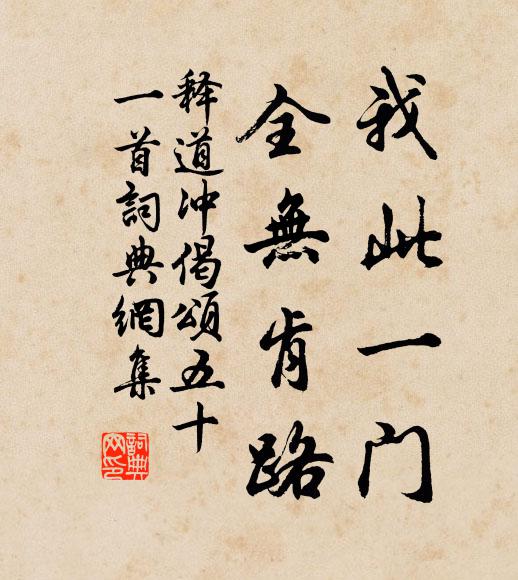 我此一门
全無肯路
释道冲偈頌五十
一首詞典網集
詞典
网印